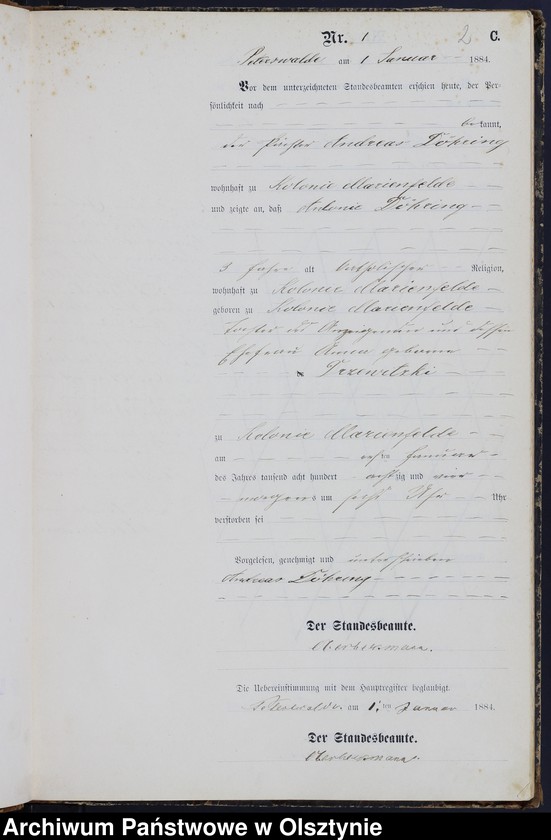 Nr. 1 2 C.
Peterswalde am 1 Januar 1884.
Vor dem unterzeichneten Standesbeamten erschien heute, der Per-
sönlichkeit nach
bekannt,
der Andreas Döhring
wohnhaft zu Kolonie Marienfelde
und zeigte an, daß Antonie Döhring
3 Jahre alt katholischer Religion,
wohnhaft zu Kolonie Marienfelde
geboren zu Kolonie Marienfelde
Tochter des und dessen
Ehefrau Anna geborene
Trzewitzki
zu Kolonie Marienfelde
am ersten Januar
des Jahres tausend acht hundert achtzig und vier
morgens um sechs Uhr Uhr
verstorben sei
Vorgelesen, genehmigt und unterschrieben
Andreas Döhring
Der Standesbeamte.
Die Uebereinstimmung mit dem Hauptregister beglaubigt.
Peterswalde am 1ten Januar 1884.
Der Standesbeamte.
Archiwum Państwowe w Olsztynie